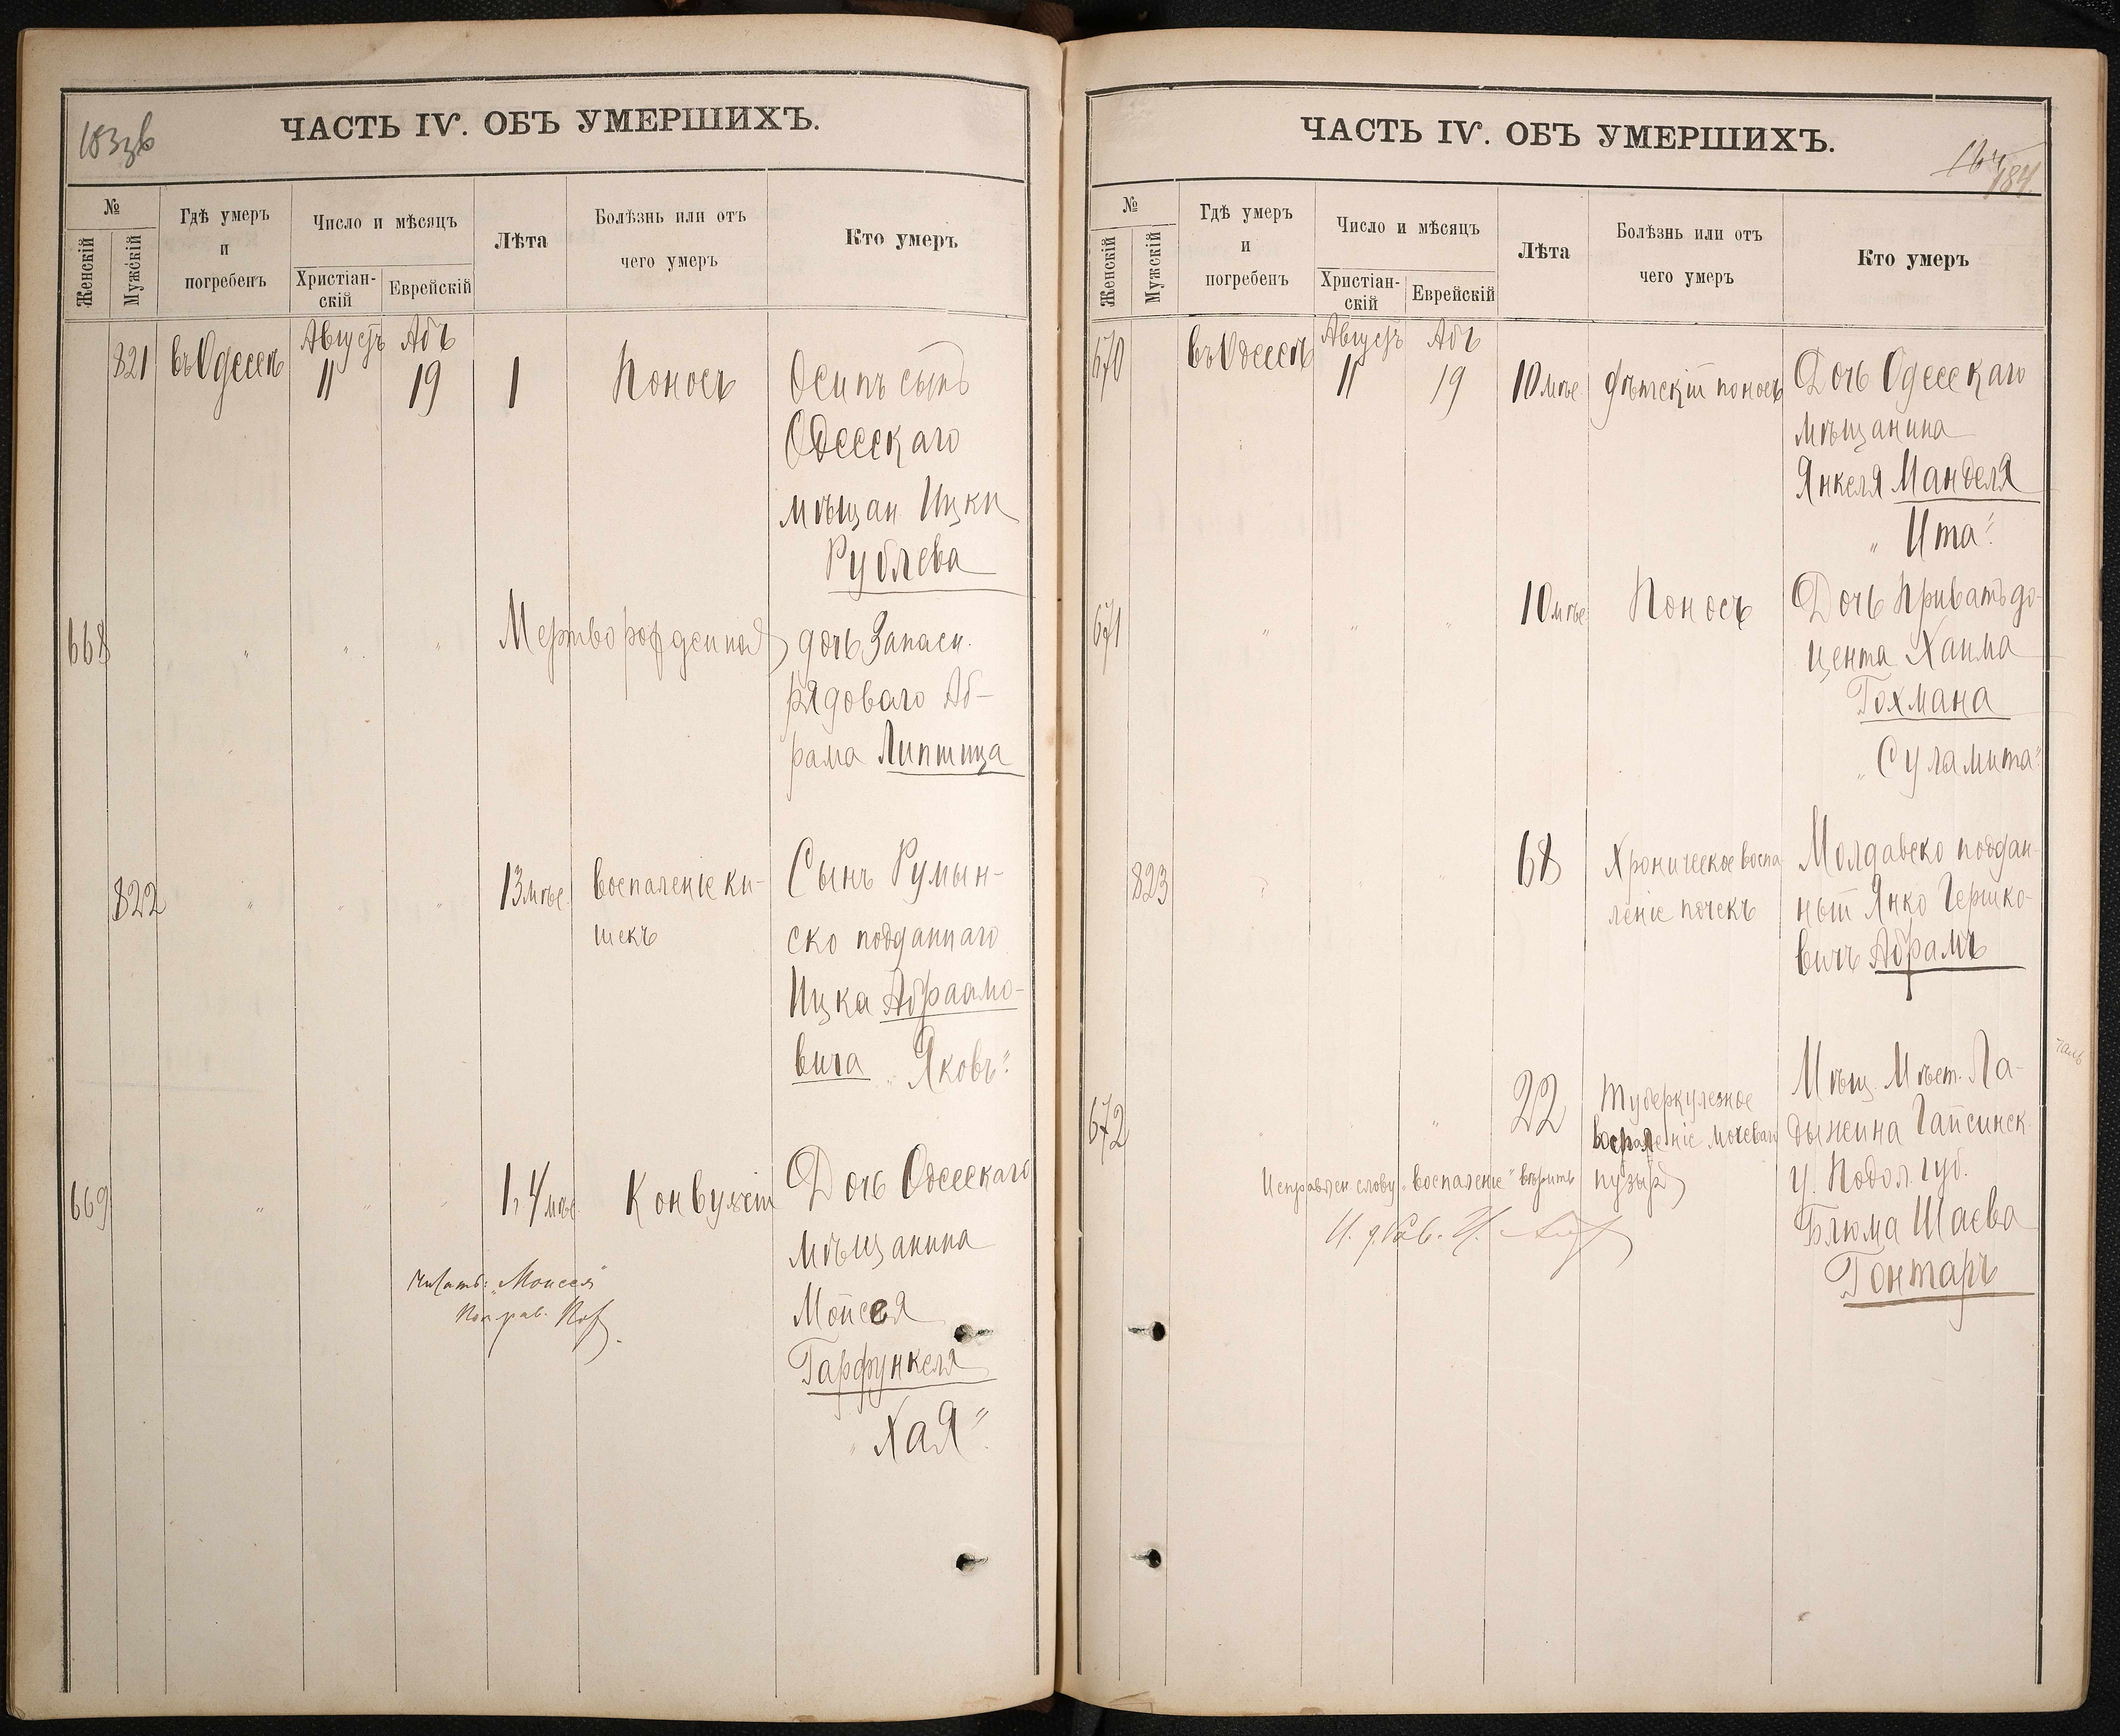 183зв
ЧАСТЬ IV. ОБЪ УМЕРШИХЪ.
№
Женскій
Мужскій
Гдѣ умеръ
и
погребенъ
Число и мѣсяцъ
Христіан-
скій
Еврейскій
Лѣта
Болѣзнь или отъ
чего умеръ
Кто умеръ
821 въ Одессѣ Августъ 11 Абъ 19 1 Поносъ Осипъ сынъ
Одесскаго
мѣщан Ицки
Рублева
668 " " " Мертворожденная дочь Запасн.
рядоваго Аб-
рама Липтица
822 " " " 13 мѣс. воспаленіе ки- Сынъ Румын-
шекъ ско подданнаго
Ицка Абраамо-
вича „Яковъ"
669 " " " 1, 4 мѣс Конвульсіи Дочь Одесскаго
мѣщанина
Читать: „Моисея" Мойсея
Гарфункеля
„Хая"
ЧАСТЬ IV. ОБЪ УМЕРШИХЪ.
184
№
Женскій
Мужскій
Гдѣ умеръ
и
погребенъ
Число и мѣсяцъ
Христіан-
скій
Еврейскій
Лѣта
Болѣзнь или отъ
чего умеръ
Кто умеръ
670 въ Одессѣ Августъ 11 Абъ 19 10 мѣс. дѣтскій поносъ Дочь Одесскаго
мѣщанина
Янкеля Манделя
„Ита"
671 " " " 10 мѣс. Поносъ Дочь Приватъ до-
цента Хаима
Гохмана
„Суламита"
823 " " " 68 Хроническое воспа- Молдавско поддан-
леніе почекъ ный Янко Гершко-
вичъ Абрамъ
672 " " " 22 Туберкулезное Мѣщ. Мѣст. Ла-
воспаленіе мочеваго дыжина Гайсинск.
Исправлен слову „воспаленіе" вѣрить пузыря у. Подол. губ.
Блюма Шаева
Гонтаръ